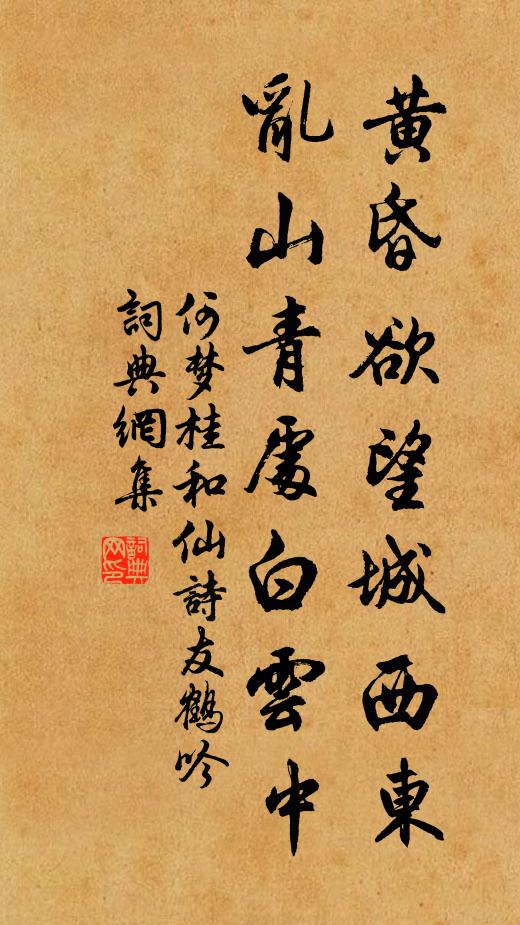 黄昏欲望城西東
亂山青處白雲中
何梦桂和仙詩友鶴吟
詞典網集
詞典
网印